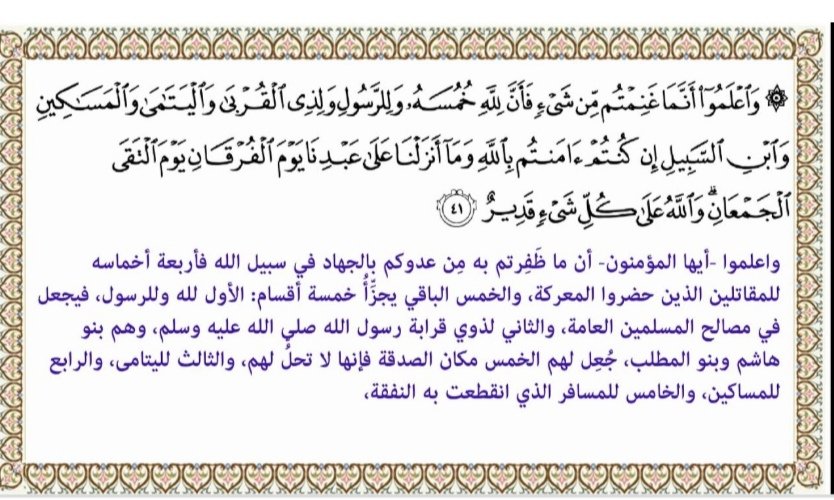 ۞ وَٱعۡلَمُوٓاْ أَنَّمَا غَنِمۡتُم مِّن شَيۡءٖ فَأَنَّ لِلَّهِ خُمُسَهُۥ وَلِلرَّسُولِ وَلِذِي ٱلۡقُرۡبَىٰ وَٱلۡيَتَٰمَىٰ وَٱلۡمَسَٰكِينِ
وَٱبۡنِ ٱلسَّبِيلِ إِن كُنتُمۡ ءَامَنتُم بِٱللَّهِ وَمَآ أَنزَلۡنَا عَلَىٰ عَبۡدِنَا يَوۡمَ ٱلۡفُرۡقَانِ يَوۡمَ ٱلۡتَقَى
ٱلۡجَمۡعَانِۗ وَٱللَّهُ عَلَىٰ كُلِّ شَيۡءٖ قَدِيرٌ ٤١
واعلموا -أيها المؤمنون- أن ما ظَفِرتم به مِن عدوكم بالجهاد في سبيل الله فأربعة أخماسه
للمقاتلين الذين حضروا المعركة، والخمس الباقي يجزَّأُ خمسة أقسام: الأول لله وللرسول، فيجعل
في مصالح المسلمين العامة، والثاني لذوي قرابة رسول الله صلى الله عليه وسلم، وهم بنو
هاشم وبنو المطلب، جُعِل لهم الخمس مكان الصدقة فإنها لا تحلُّ لهم، والثالث لليتامى، والرابع
للمساكين، والخامس للمسافر الذي انقطعت به النفقة،